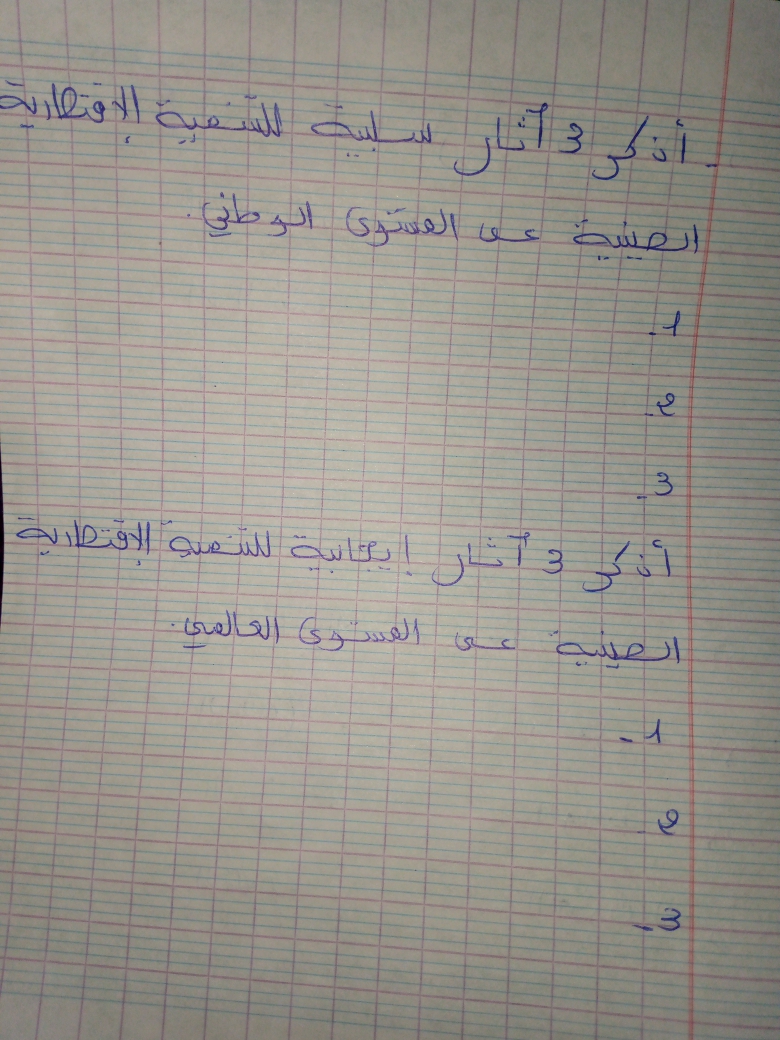 - أذكر 3 آثار سلبية للتنمية الإقتصادية
الصينية على المستوى الوطني.
1-
2-
3-
أذكر 3 آثار إيجابية للتنمية الإقتصادية
الصينية على المستوى العالمي.
1-
2
3-